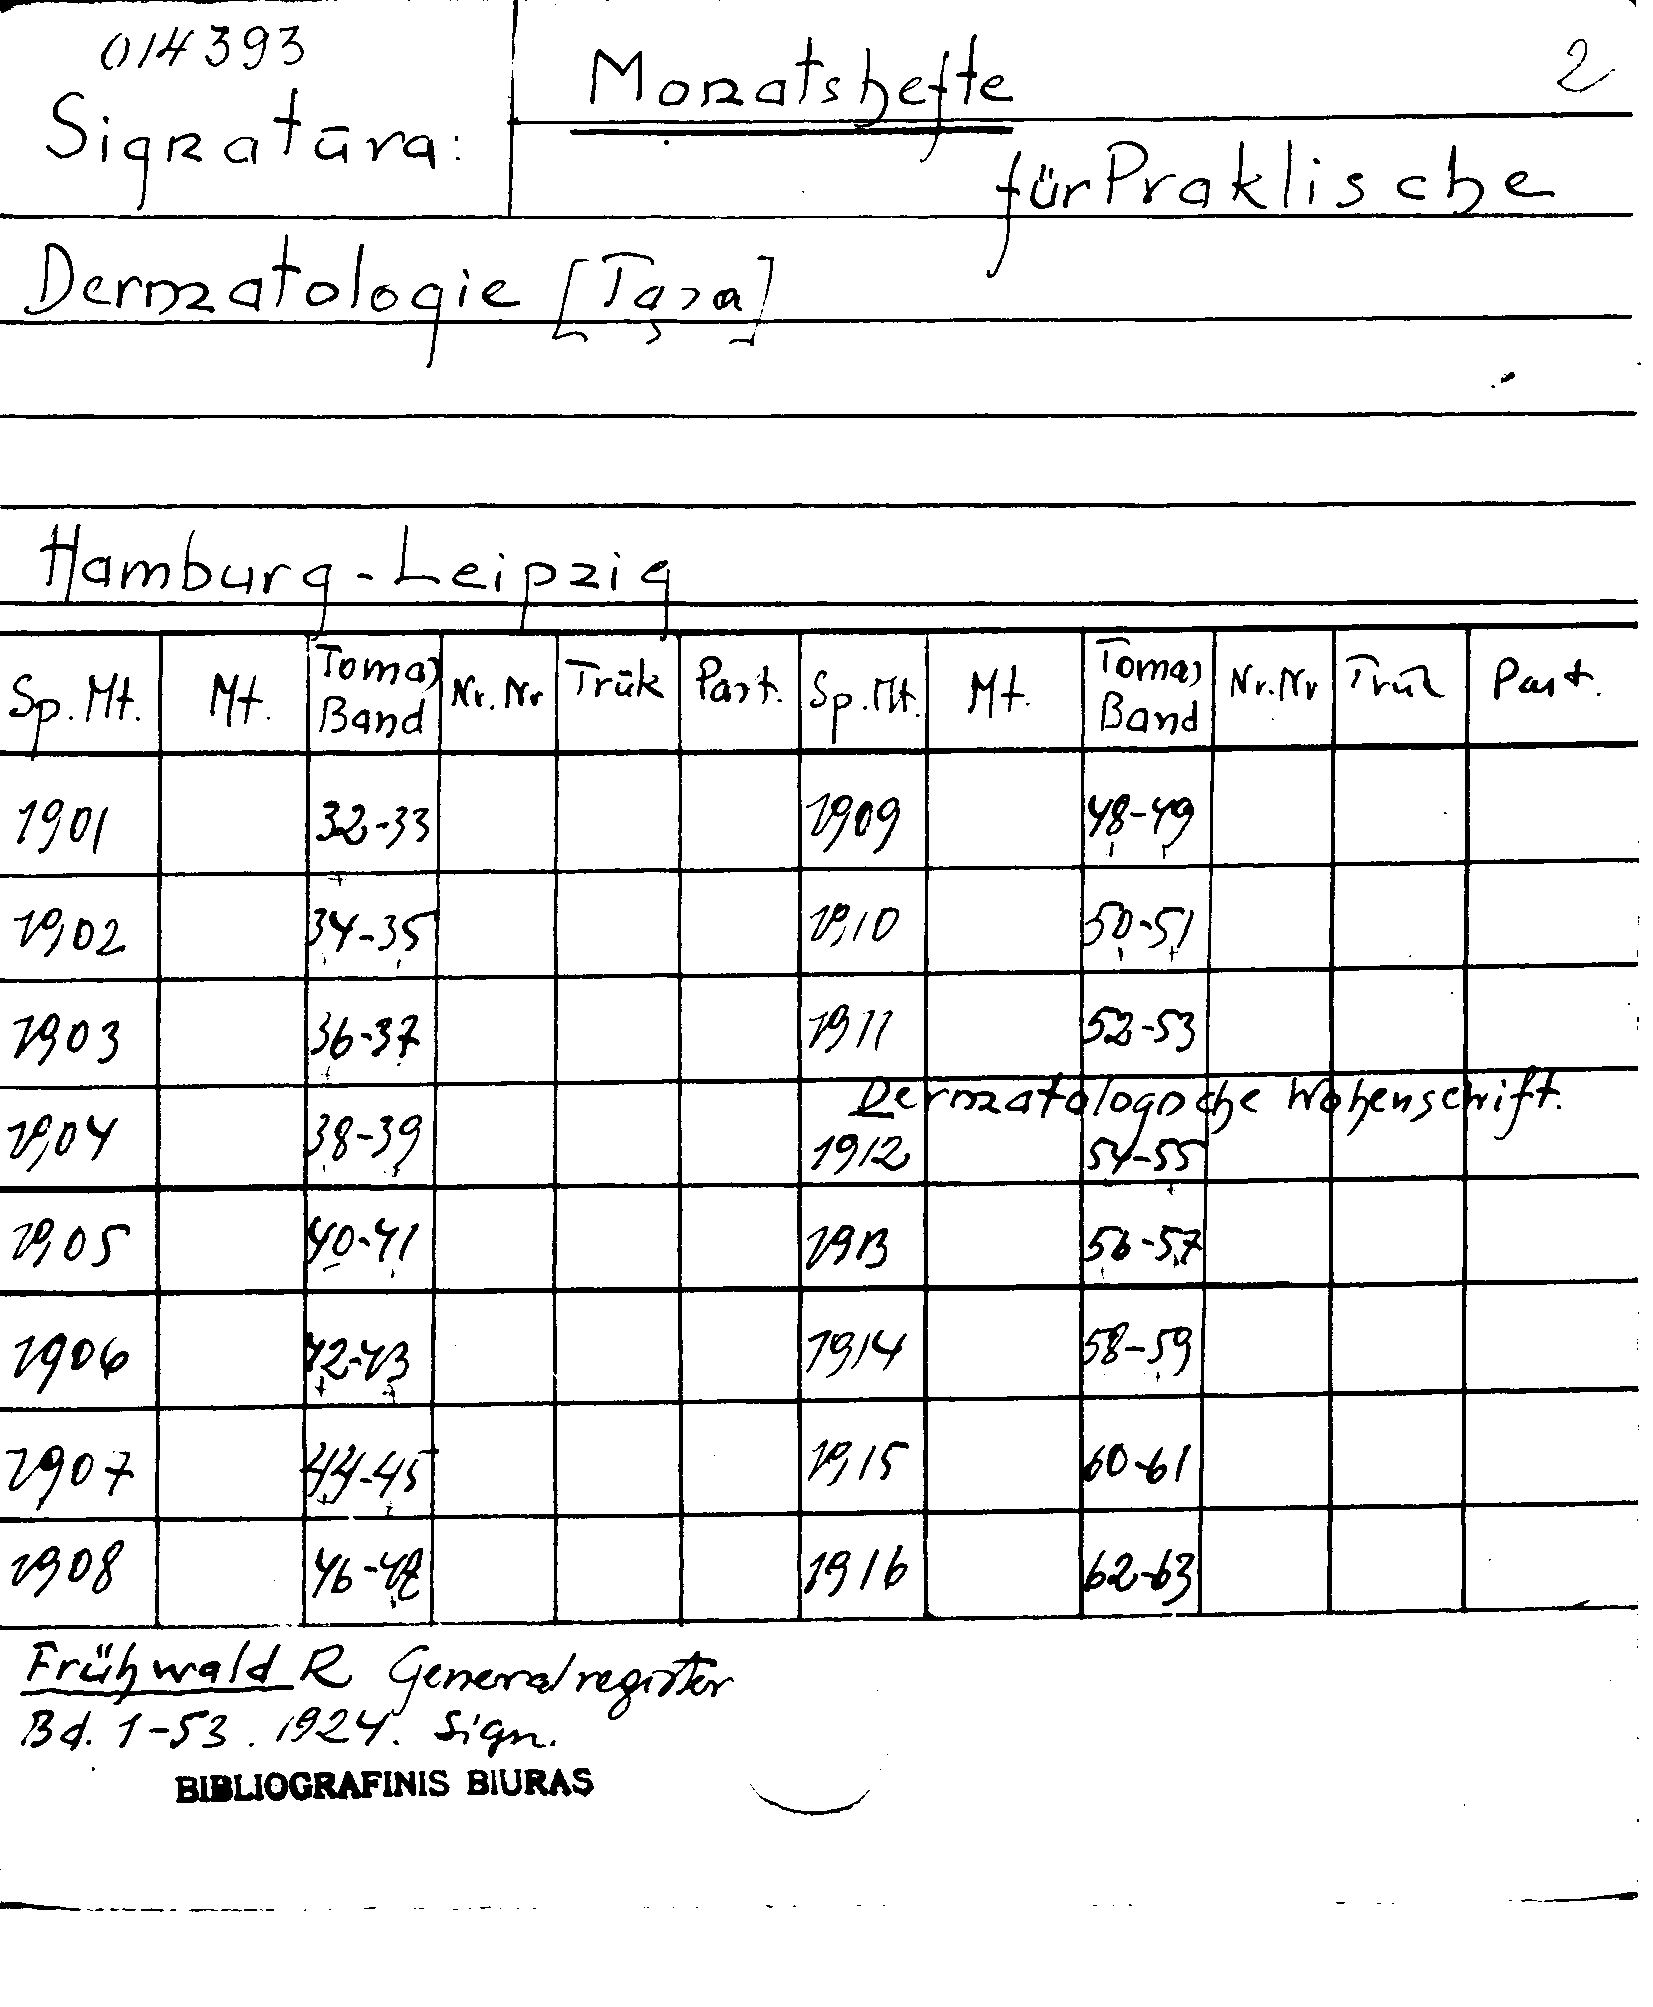 014393
Signatūra:
Monatshefte
2
für Praklische
Dermatologie [Tąsa]
Hamburg-Leipzig
Sp. Mt. Mt. Tomas Band Nr. Nr Trūk Past. Sp. Mt. Mt. Tomas Band Nr. Nr Trūk Past.
1901 32-33 1909 48-49
1902 34-35 1910 50-51
1903 36-37 1911 52-53
Dermatologische Wohenschrift.
1904 38-39 1912 54-55
1905 40-41 1913 56-57
1906 42-43 1914 58-59
1907 44-45 1915 60-61
1908 1916 62-63
Frühwald R Generalregister
Bd. 1-53. 1924. Sign.
BIBLIOGRAFINIS BIURAS